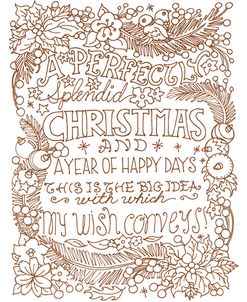 A PERFECTLY
Splendid
CHRISTMAS
AND
A YEAR OF HAPPY DAYS
THIS IS THE BIG IDEA
with which
MY WISH CONVEYS!